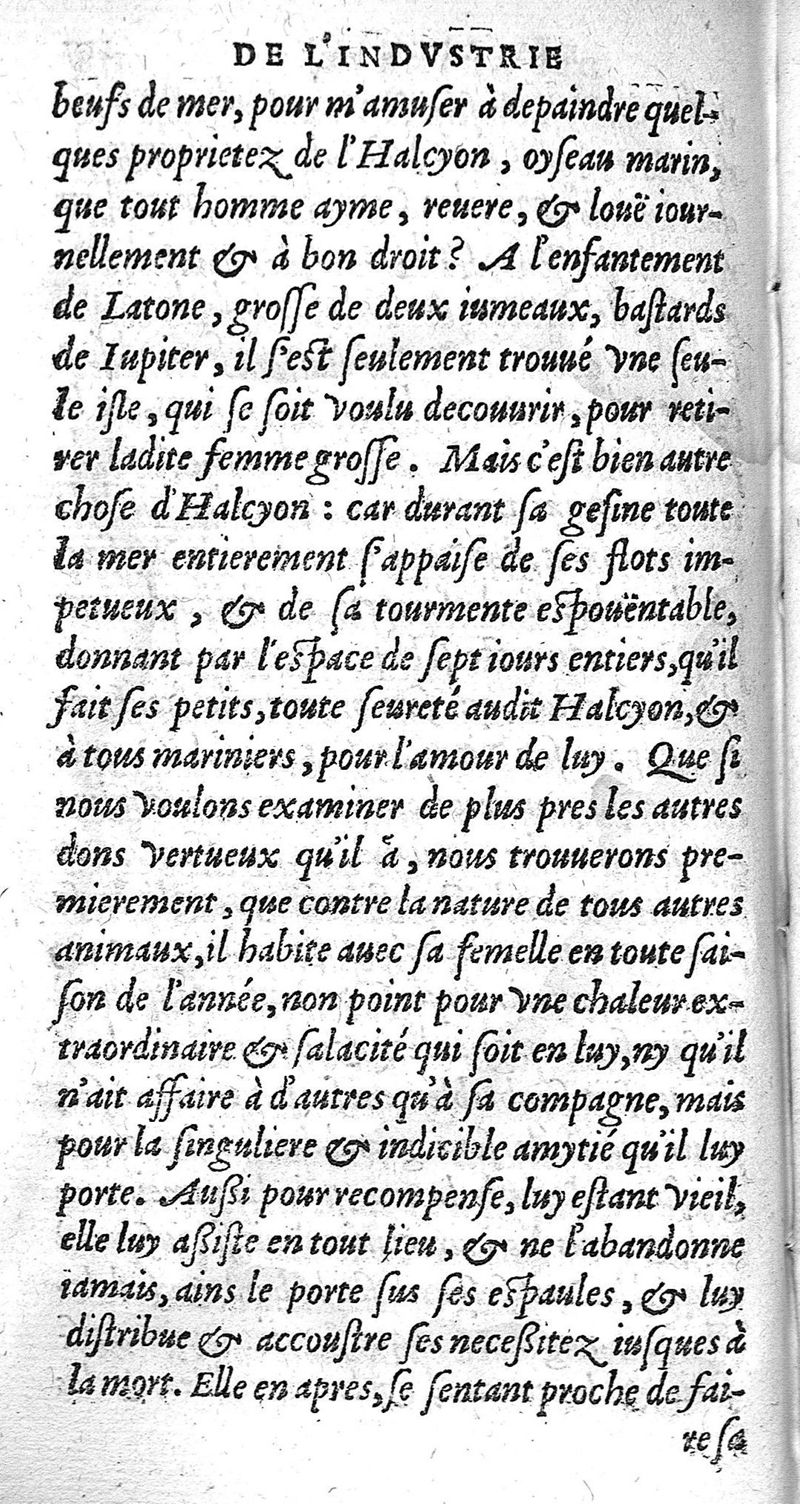 DE L'INDVSTRIE
beufs de mer, pour m'amuser à depaindre quel-
ques proprietez de l'Halcyon, oyſeau marin,
que tout homme ayme, reuere, & louë iour-
nellement & à bon droit? A l'enfantement
de Latone, groſſe de deux iumeaux, baſtards
de Iupiter, il ſ'eſt ſeulement trouué vne ſeu-
le iſle, qui ſe ſoit voulu decouurir, pour reti-
rer ladite femme groſſe. Mais c'eſt bien autre
choſe d'Halcyon: car durant ſa geſine toute
la mer entierement ſ'appaiſe de ſes flots im-
petueux, & de ſa tourmente eſpouëntable,
donnant par l'eſpace de ſept iours entiers, qu'il
fait ſes petits, toute ſeureté audit Halcyon, &
à tous mariniers, pour l'amour de luy. Que ſi
nous voulons examiner de plus pres les autres
dons vertueux qu'il à, nous trouuerons pre-
mierement, que contre la nature de tous autres
animaux, il habite auec ſa femelle en toute ſai-
ſon de l'année, non point pour vne chaleur ex-
traordinaire & ſalacité qui ſoit en luy, ny qu'il
n'ait affaire à d'autres qu'à ſa compagne, mais
pour la ſinguliere & indicible amytié qu'il luy
porte. Außi pour recompenſe, luy eſtant vieil,
elle luy aßiſte en tout lieu, & ne l'abandonne
iamais, ains le porte ſus ſes eſpaules, & luy
diſtribue & accouſtre ſes neceßitez iuſques à
la mort. Elle en apres, ſe ſentant proche de fai-
re ſa